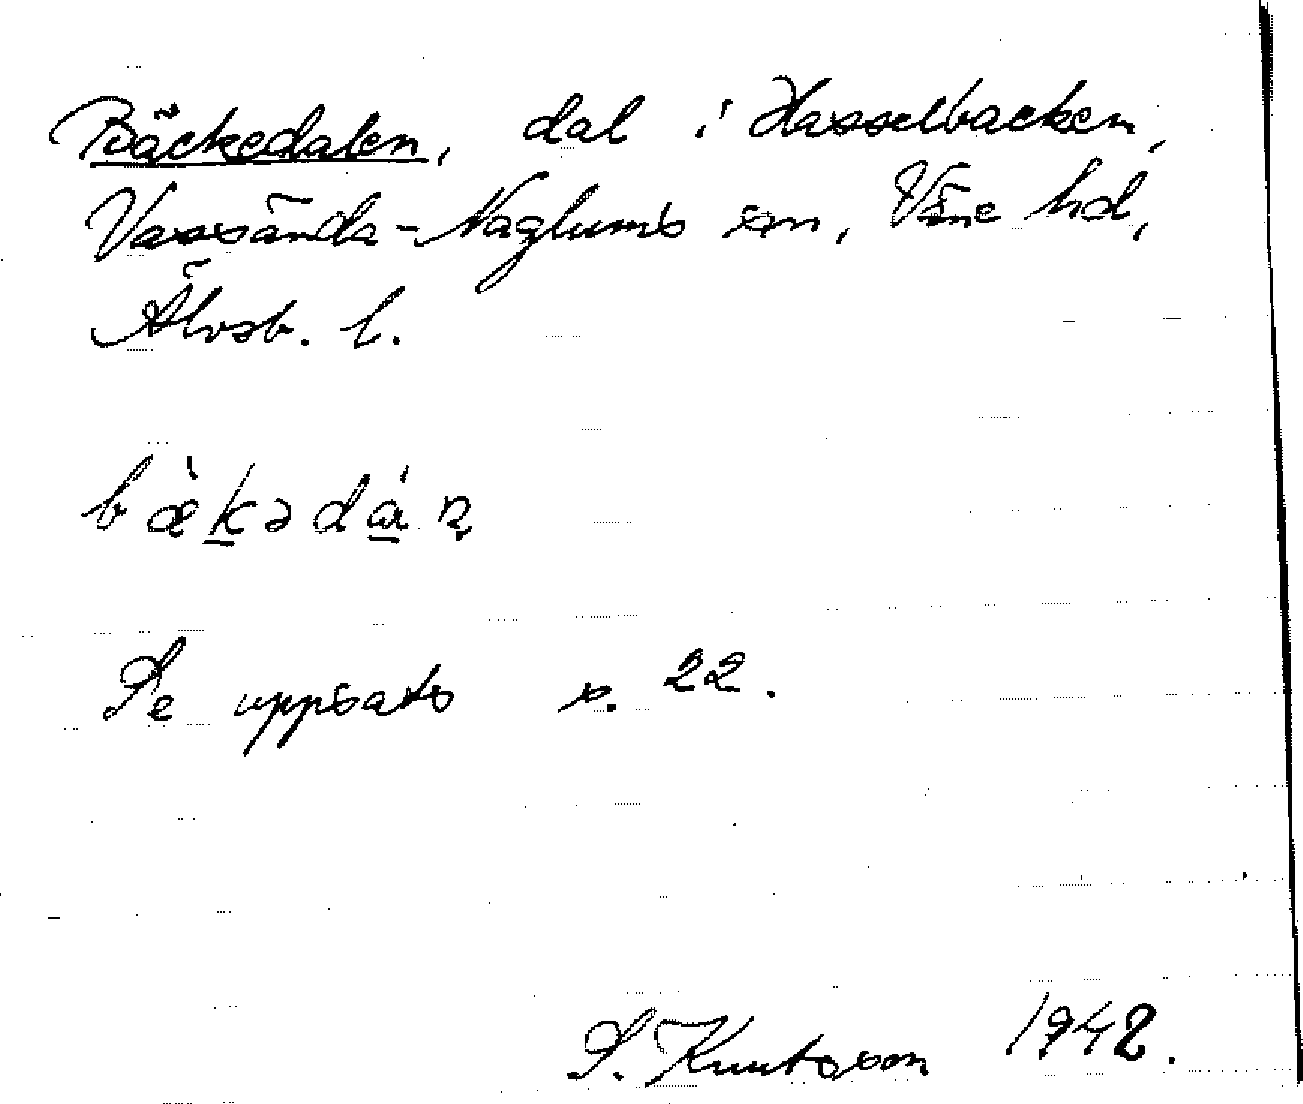 Bäckedalen, dal i Hasselbacken,
Vassända-Naglums sn, Väne hd,
Älvsb. l.
bæ̀kədán
Se uppsats s. 22.
S. Knutsson 1942.